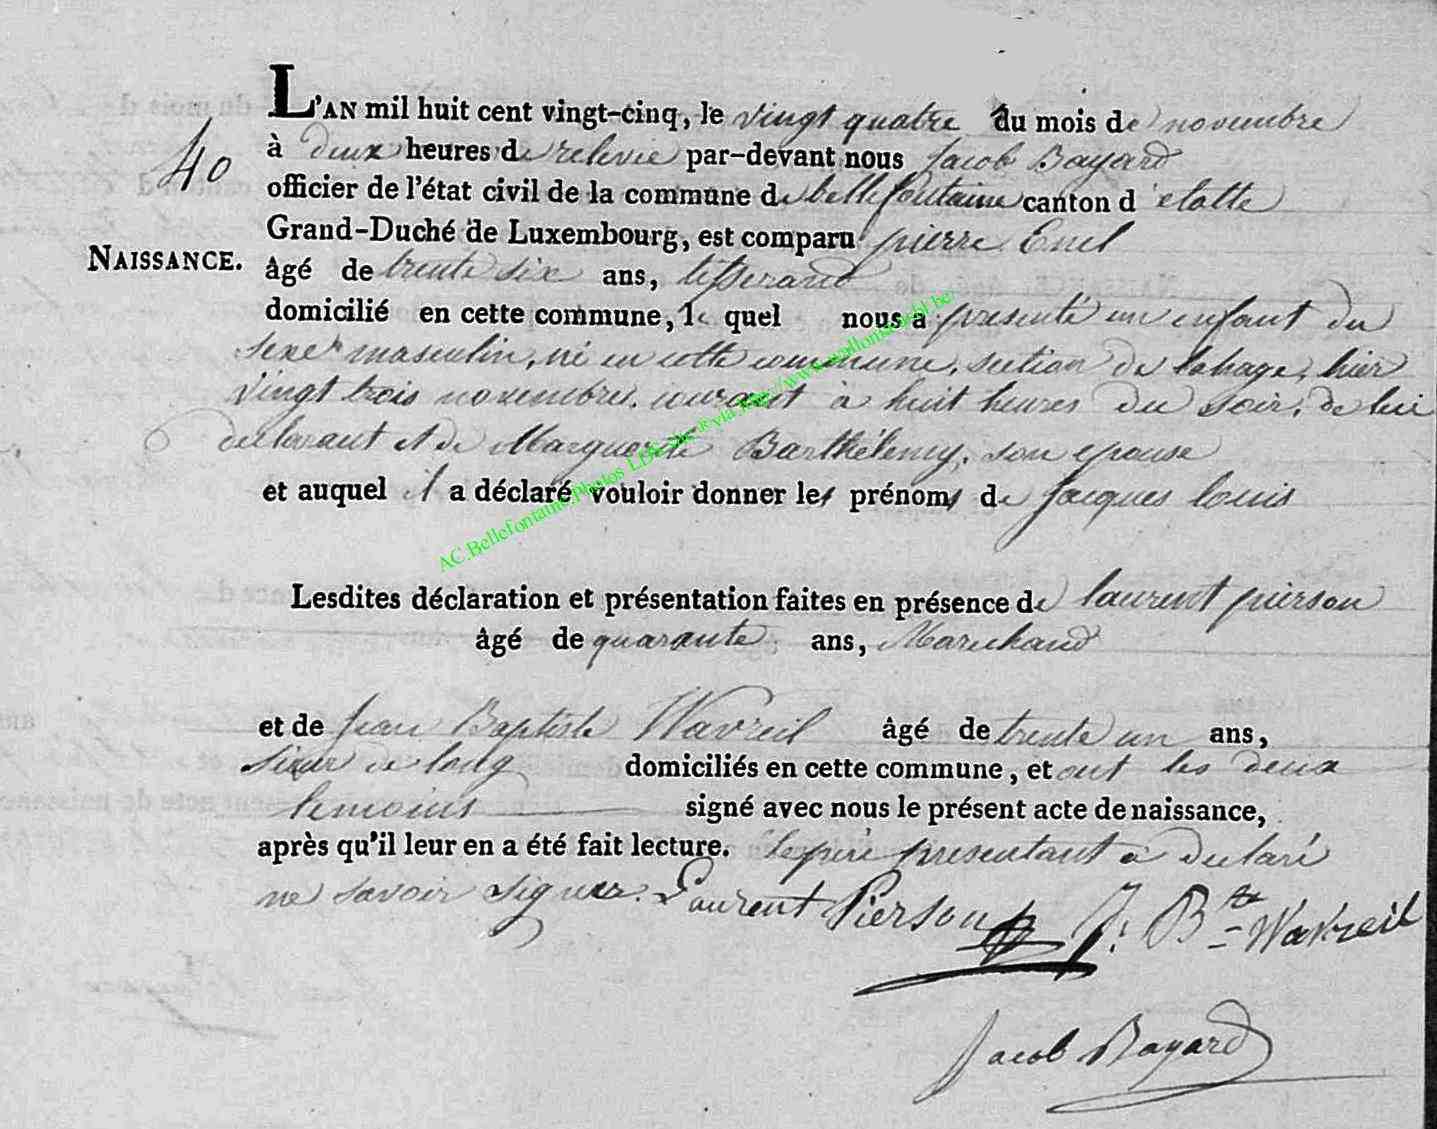 L'AN mil huit cent vingt-cinq, le vingt quatre du mois de novembre
40
à deux heures de relevée par-devant nous Jacob Bayard
officier de l'état civil de la commune de bellefontaine canton d'etalle
Grand-Duché de Luxembourg, est comparu pierre Enel
NAISSANCE.
âgé de trente six ans, tisserand
domicilié en cette commune, le quel nous a presenté un enfant du
sexe masculin, né en cette commune, section de lahage, hier
vingt trois novembre, courant à huit heures du soir, de lui
declarant et de Marguerite Barthélemy, son epouse
et auquel il a déclaré vouloir donner les prénoms de Jacques louis
AC.Bellefontaine Photos via http://www
Lesdites déclaration et présentation faites en présence de laurent pierson
âgé de quarante ans, Marechand
et de Jean Baptiste Wavreil âgé de trente un ans,
sieur de long domiciliés en cette commune, et ont les deux
temoins signé avec nous le présent acte de naissance,
après qu'il leur en a été fait lecture. le père presentant a declaré
ne savoir signer. Laurent Pierson J: Bte Wavreil
Jacob Bayard